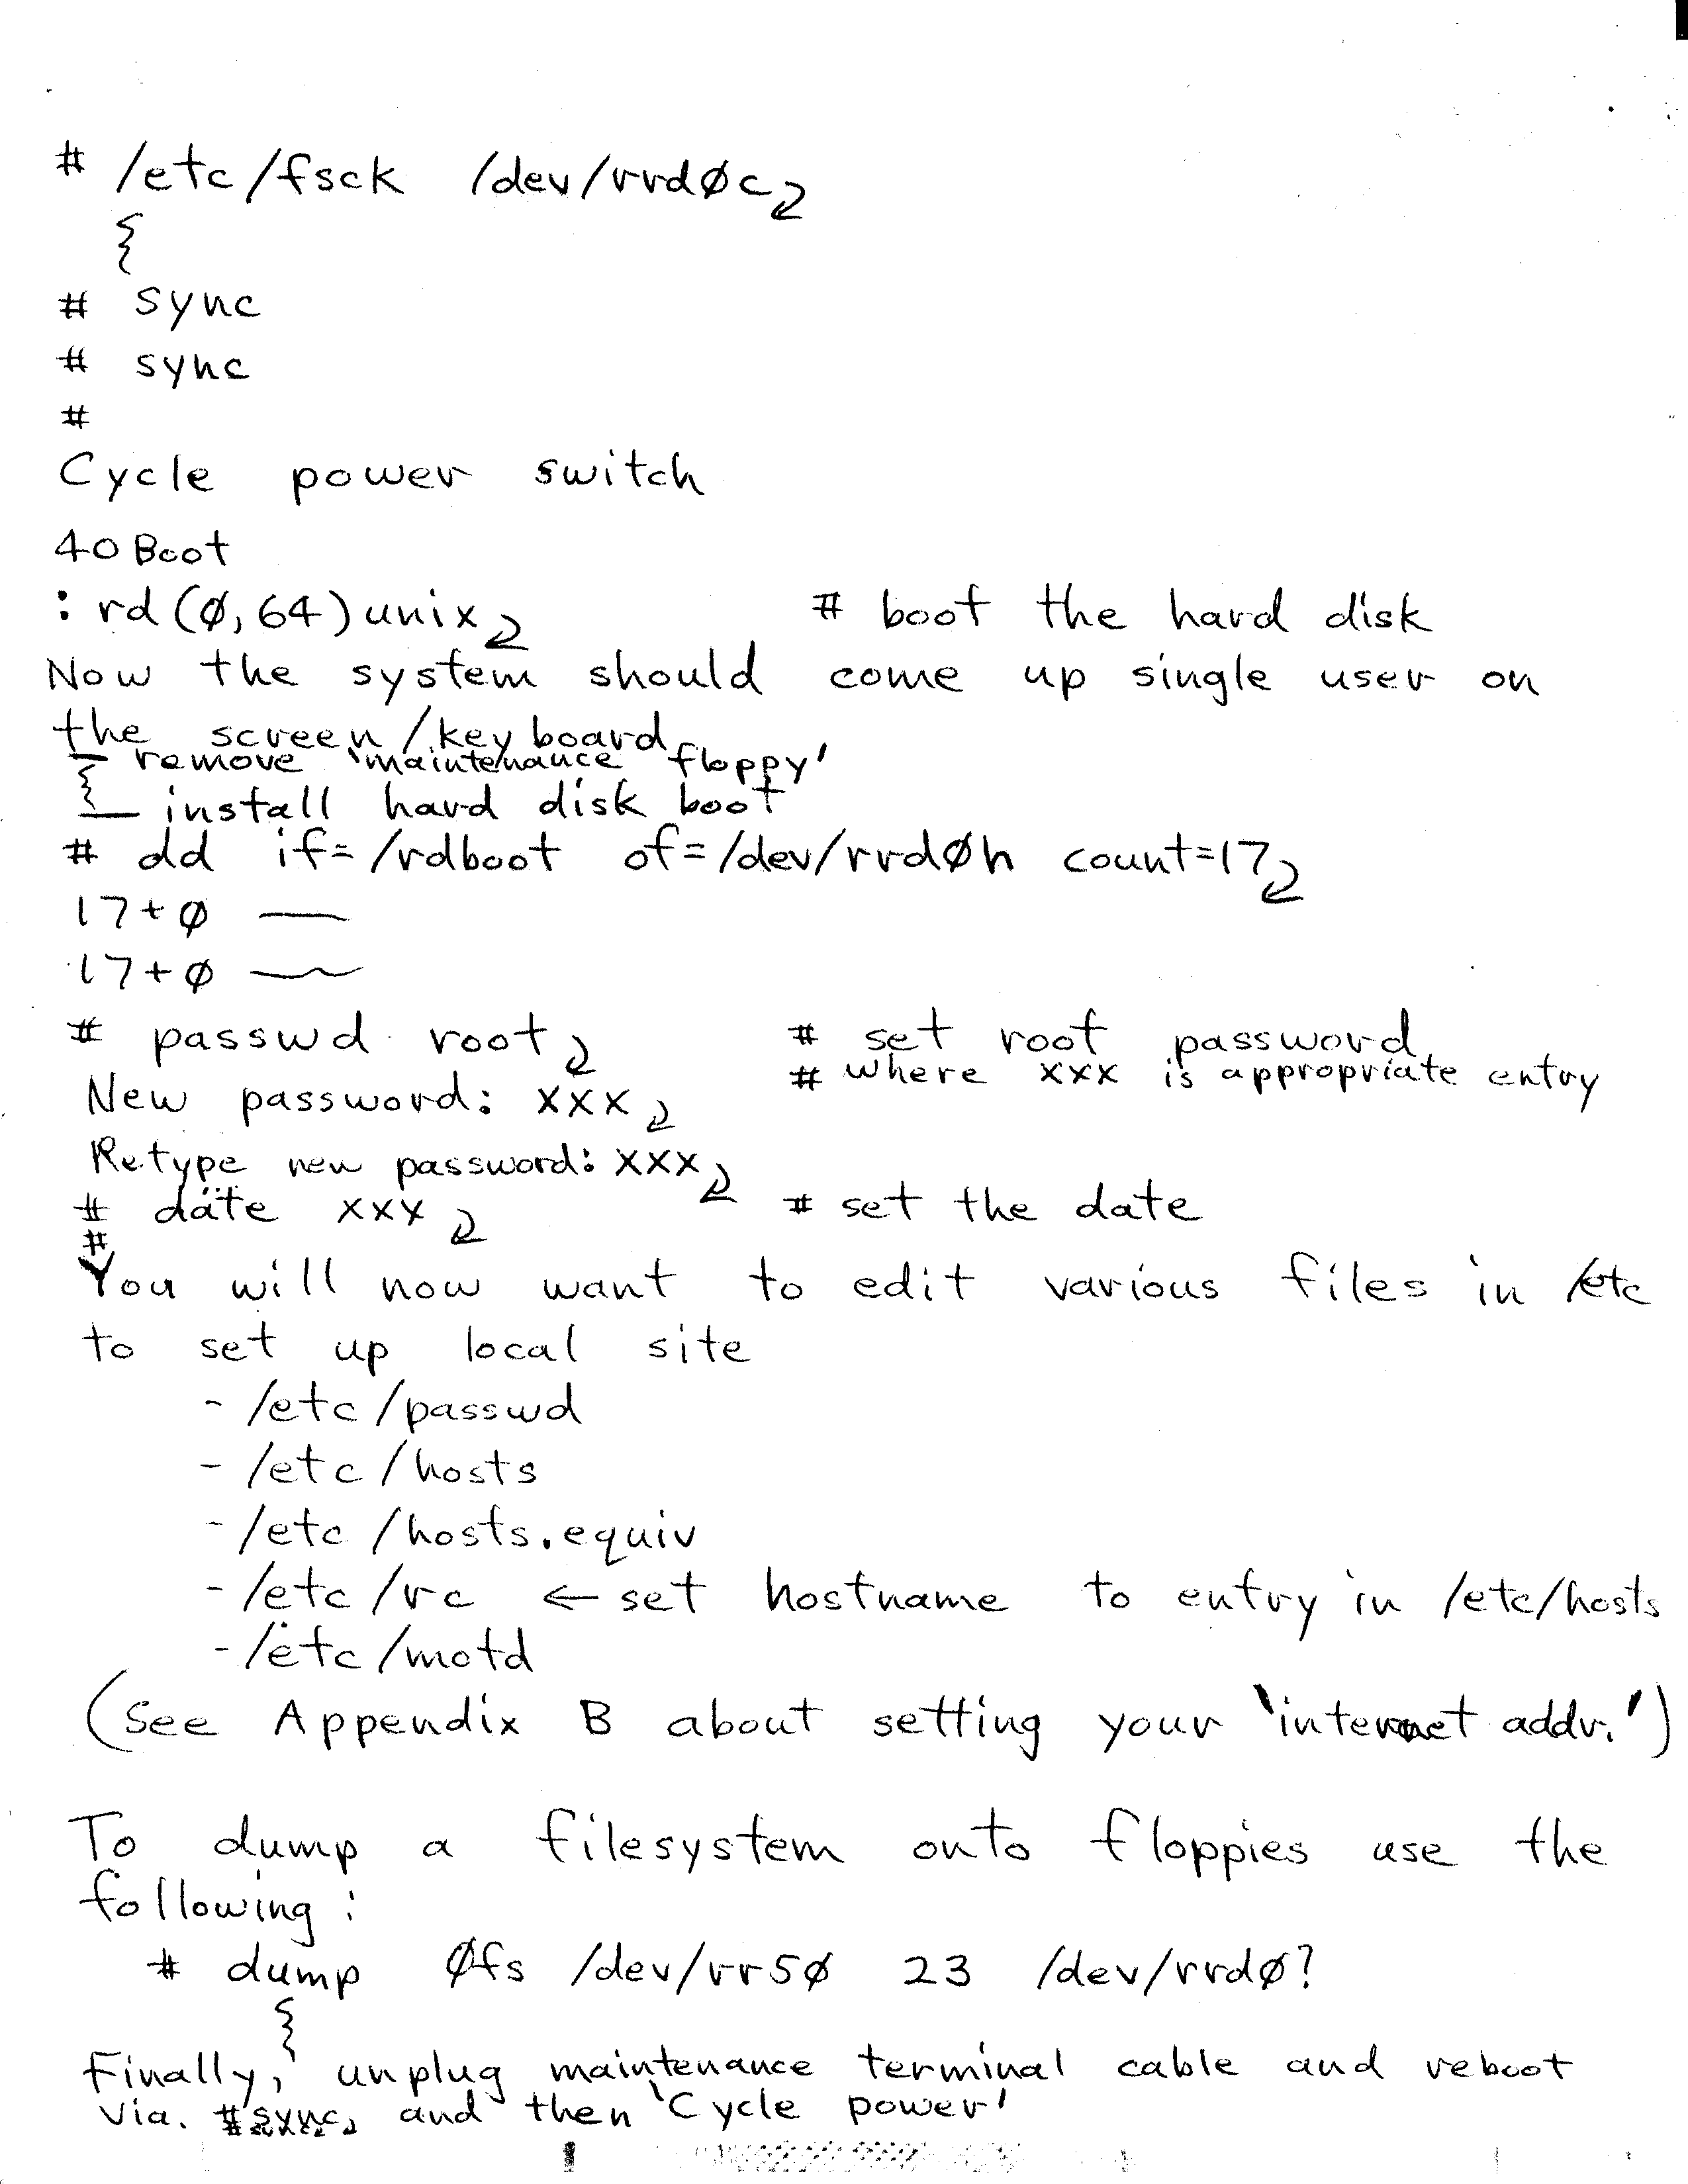 # /etc/fsck /dev/rrdØc
# sync
# sync
#
Cycle power switch
40 Boot
: rd(Ø,64)unix # boot the hard disk
Now the system should come up single user on
the screen/keyboard
— remove 'maintenance floppy'
— install hard disk boot
# dd if=/rdboot of=/dev/rrdØh count=17
17+Ø —
17+Ø —
# passwd root # set root password
# where xxx is appropriate entry
New password: xxx
Retype new password: xxx
# date xxx # set the date
#
You will now want to edit various files in /etc
to set up local site
- /etc/passwd
- /etc/hosts
- /etc/hosts.equiv
- /etc/rc ← set hostname to entry in /etc/hosts
- /etc/motd
(See Appendix B about setting your 'internet addr.')
To dump a filesystem onto floppies use the
following:
# dump Øfs /dev/rr5Ø 23 /dev/rrdØ?
Finally, unplug maintenance terminal cable and reboot
via. # sync, and then 'Cycle power'